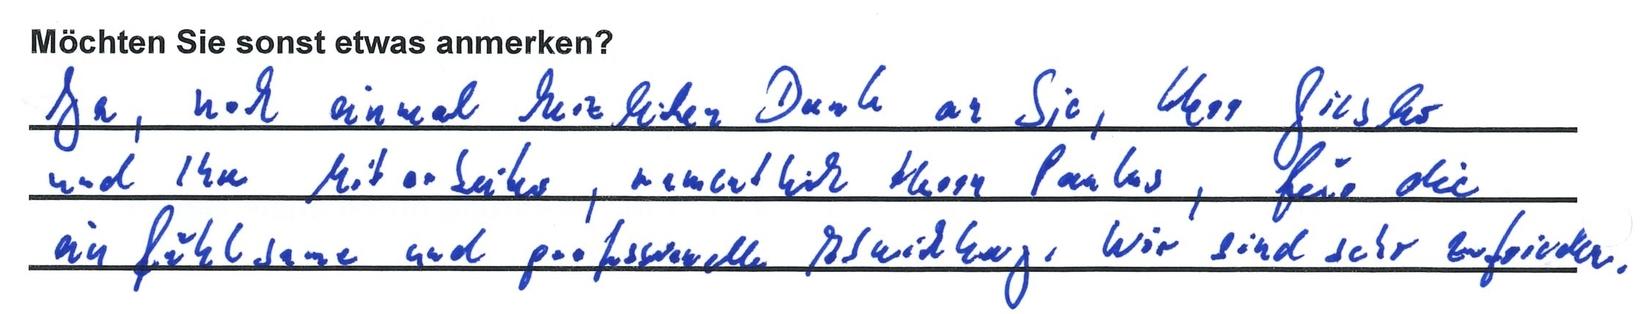 Möchten Sie sonst etwas anmerken?
Ja, noch einmal herzlichen Dank an Sie, Herr
und Ihre Mitarbeiter, namentlich Herrn Paulus, für die
einfühlsame und professionelle Abwicklung. Wir sind sehr zufrieden.